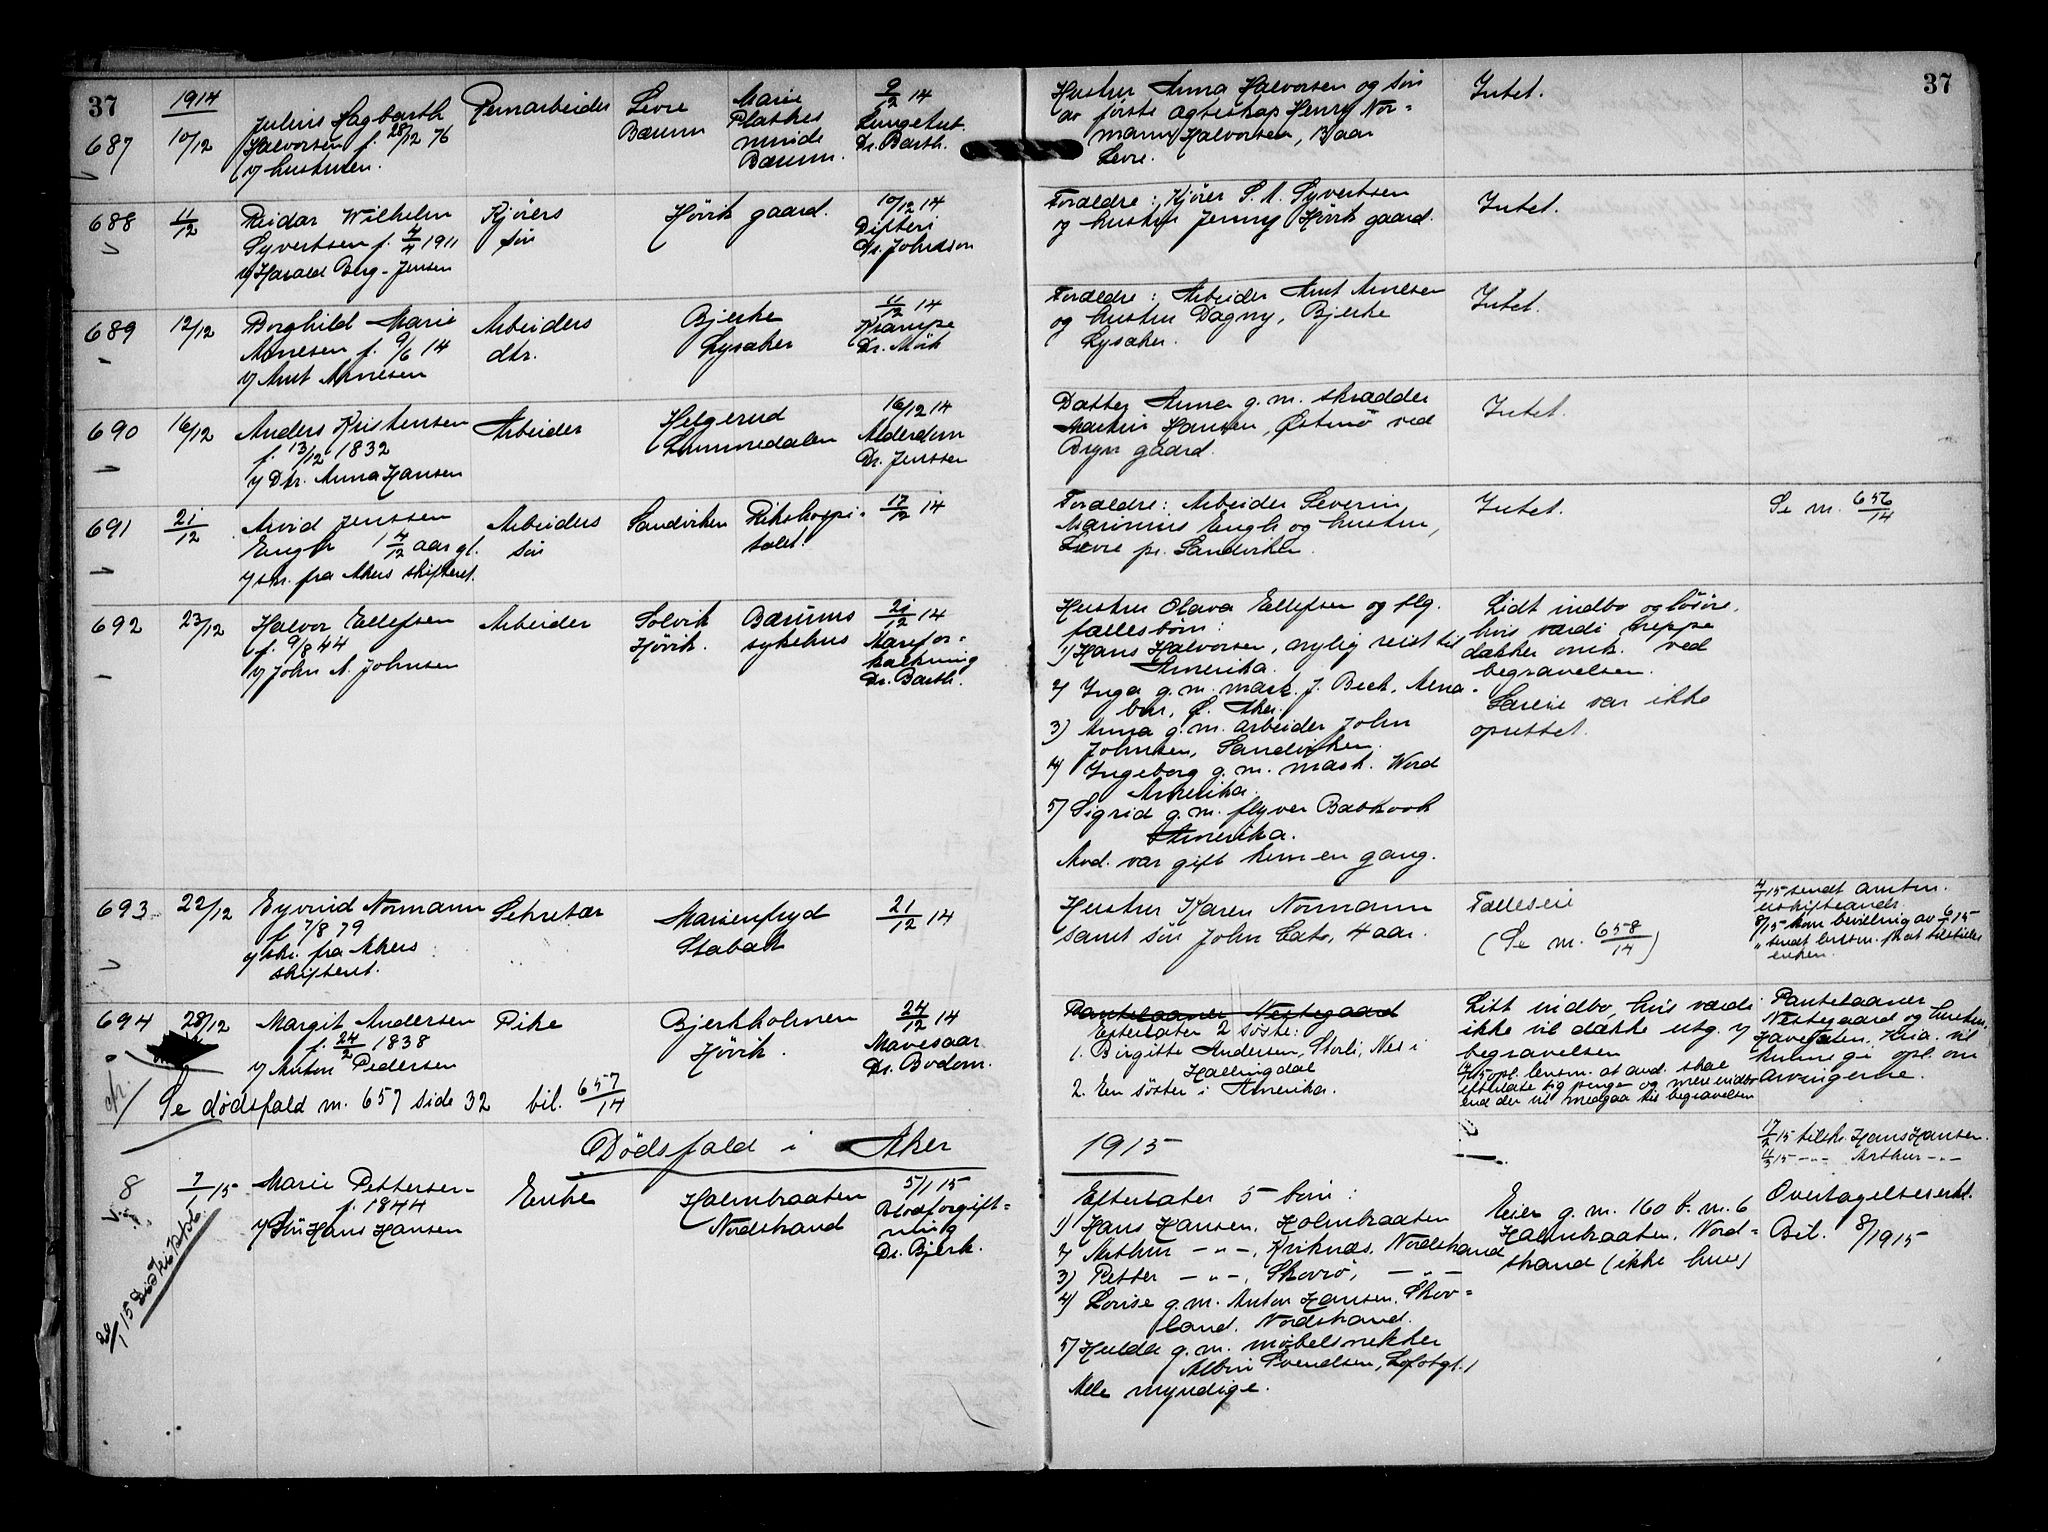 37
1914
687
10/12
Julius Hagbarth
Halvorsen f. 28/12 76
v/ hustruen.
Jernarbeider
Levre
Bærum
Marie
Plathes
minde
Bærum.
9/12 14
Lungetub.
Dr. Barth.
Hustru Anna Halvorsen og søn
av første ægteskap Henry Nor-
mann Halvorsen, 13 aar
Levre.
Intet.
37
688
11/12
Reidar Wilhelm
Syvertsen f. 4/4 1911
v/ Harald Berg-Jensen
Kjørers
søn
Høvik gaard.
10/12 14
Difteri
Dr. Johnson
Forældre: Kjører S. A. Syvertsen
og hustru Jenny Høvik gaard.
Intet.
689
12/12
Borghild Marie
Arnesen f. 9/6 14
v/ Arnt Arnesen
Arbeiders
dtr.
Bjerke
Lysaker
11/12 14
Krampe
Dr. Mørk
Forældre: Arbeider Arnt Arnesen
og hustru Dagny, Bjerke
Lysaker.
Intet.
690
16/12
Anders Kristensen
f. 13/12 1832
v/ Dtr. Anna Hansen
Arbeider
Helgerud
Lommedalen
16/12 14
Alderdom
Dr. Jenssen
Datter Anna g.m. skrædder
Martin Hansen, Østmo ved
Bryn gaard.
Intet.
691
21/12
Arvid Jenssen
Engh 1 4/12 aar gl.
v/ skr. fra Akers skifteret.
Arbeiders
søn
Sandviken
Rikshospi-
talet.
17/12 14
Forældre: Arbeider Severin
Marinius Engh og hustru,
Levre pr. Sandviken.
Intet.
Se nr. 656/14
692
23/12
Halvor Ellefsen
f. 9/8 44
v/ John A. Johnsen
Arbeider
Solvik
Høvik.
Bærums
sykehus
21/12 14
Aarefor-
kalkning
Dr. Barth.
Hustru Olava Ellefsen og flg.
fællesbørn:
1) Hans Halvorsen, nylig reist til
Amerika.
2) Inga g.m. mask. J. Beck, Arna-
bru, Ø. Aker.
3) Anna g.m. arbeider John
Johnsen, Sandviken.
4) Ingeborg g.m. mask. Word
Amerika.
5) Sigrid g.m. flyver Babkook
Amerika.
Avd. var gift kun en gang.
Lidt indbo og løsøre,
hvis værdi neppe
dækker omk. ved
begravelsen.
Særeie var ikke
oprettet.
693
22/12
Eyvind Normann
f. 7/8 79
v/ skr. fra Akers
skifteret.
Sekretær
Marienfryd
Stabæk
21/12 14
Hustru Karen Normann
samt søn John Cato, 4 aar.
Fælleseie
(Se nr. 658/14)
4/1 15 sendt amtm.
uskifteandr.
8/1 15 kom bevilling av 6/1 15
" sendt lensm. for at tilstilles
enken.
694
28/12
Margit Andersen
f. 24/2 1838
v/ Anton Pedersen
Pike
Bjerkholmen
Høvik.
24/12 14
Mavesaar
Dr. Bodom.
Se dødsfald nr. 657 side 32 bil. 657/14
Pantelaaner Nestegaard
Efterlater 2 søstre:
1. Birgitte Andersen, Storli, Nes i
Hallingdal
2. En søster i Amerika.
Litt indbo, hvis værdi
ikke vil dække utg. v/
begravelsen
4/1 15 opl. lensm. at avd. skal
efterlate sig penge og mere indbo
end der vil medgaa til begravelsen
Pantelaaner
Nestegaard og hustru,
Havegaten, Kria. vil
kunne gi opl. om
arvingerne.
Dödsfald i Aker
1915
17/2 15 tilskr. Hans Hansen.
4/3 15 -"- Arthur -"-
8
7/1 15
Marie Pettersen
f. 1844
v/ Søn Hans Hansen
Enke
Holmbraaten
Nordstrand
5/1 15
Blodforgift-
ning
Dr. Bjerk.
Efterlater 5 børn:
1) Hans Hansen, Holmbraaten
2) Arthur -"-, Kviknæs, Nordstrand
3) Petter -"-, Skovrø, -"-
4) Lovise g.m. Anton Hansen, Skov-
land, Nordstrand.
5) Hulda g.m. møbelsnekker
Albin Svendsen, Lofotgt. 1
Alle myndige.
Eier g.nr. 160 b.nr. 6
Holmbraaten, Nord-
strand (ikke hus)
Overtagelseserkl.
Bil. 8/1915